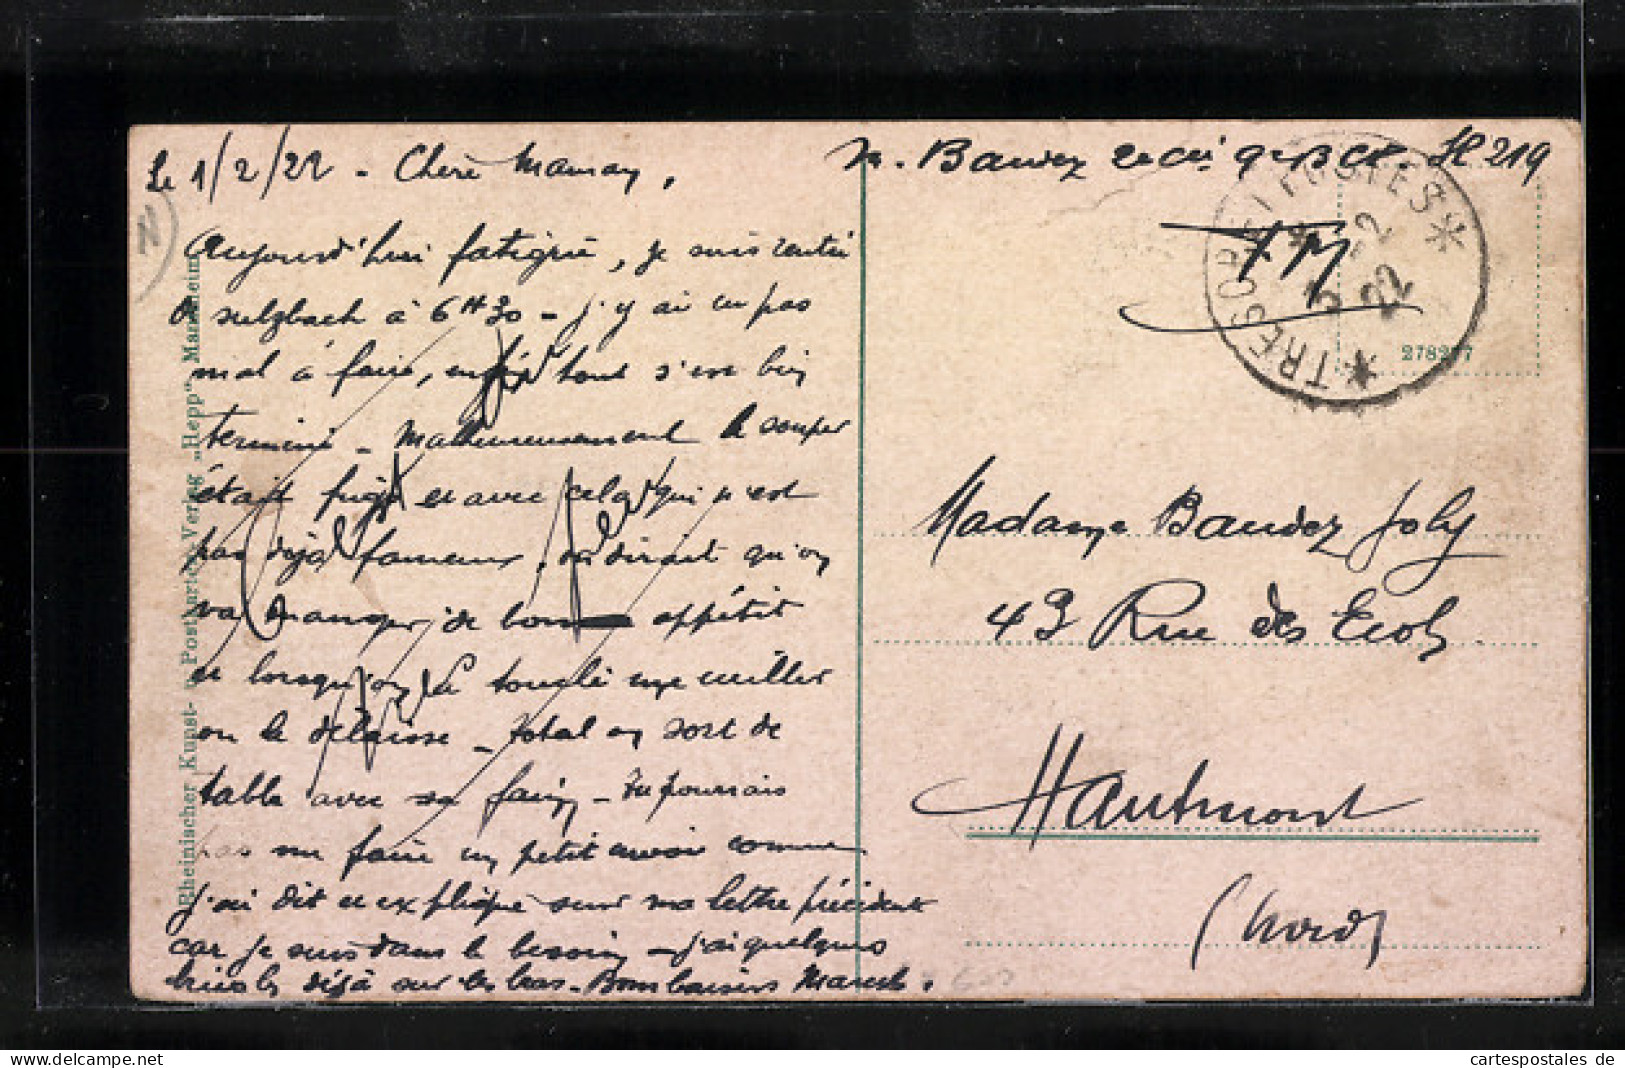 Le 1/2/22 - Chère Maman,
Aujourd'hui fatigué, je suis rentré
A sulzbach à 6H30 - j'y ai eu pas
mal à faire, enfin tout s'est bien
terminé - Malheureusement le souper
était frugal et avec cela qui n'est
pas déjà fameux, en disant qu'on
va manger de bon appétit
et lorsqu'on a touché une cuiller
on le délaisse - total on sort de
table avec sa faim - Tu pourrais
pas me faire un petit envoi comme
j'ai dit et expliqué sur ma lettre précédente
car je suis dans le besoin - j'ai quelques
bricoles déjà sur les bras - Bons baisers Marcel.
M. Baudez 9e BCP. SP 219
F.M
TRESOR ET POSTES
2-2
22
278277
Madame Baudez Joly
43 Rue des Ecoles
Hautmont
(Nord)
Rheinischer Kunst- u. Postkarten-Verlag „Hepp" Mannheim
cartespostales de